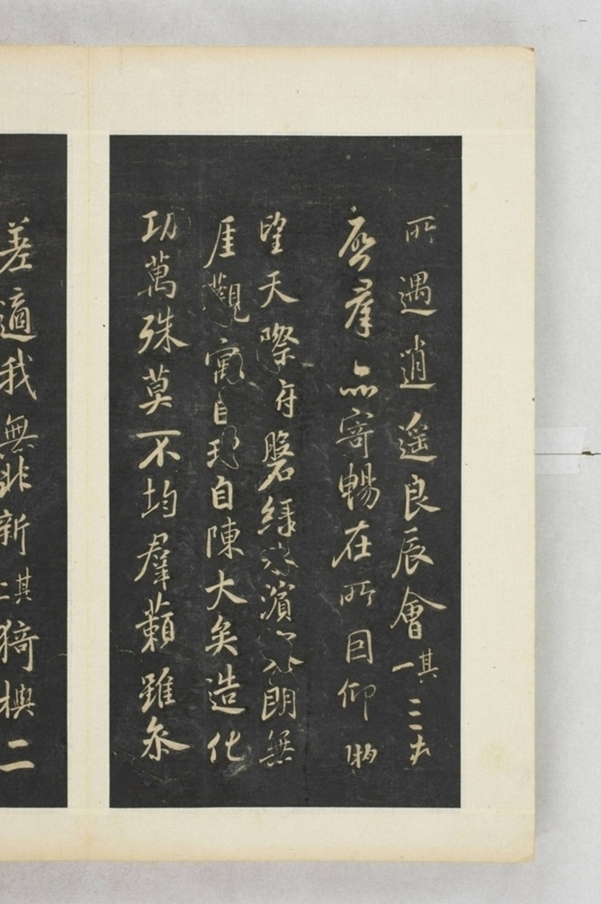 所遇逍遥良辰會其一三春
啓羣品寄暢在所因仰眺
望天際府磐緑水濱朗無
厓觀寓目理自陳大矣造化
功萬殊莫不均羣籟雖参
差適我無非新其二猗與二